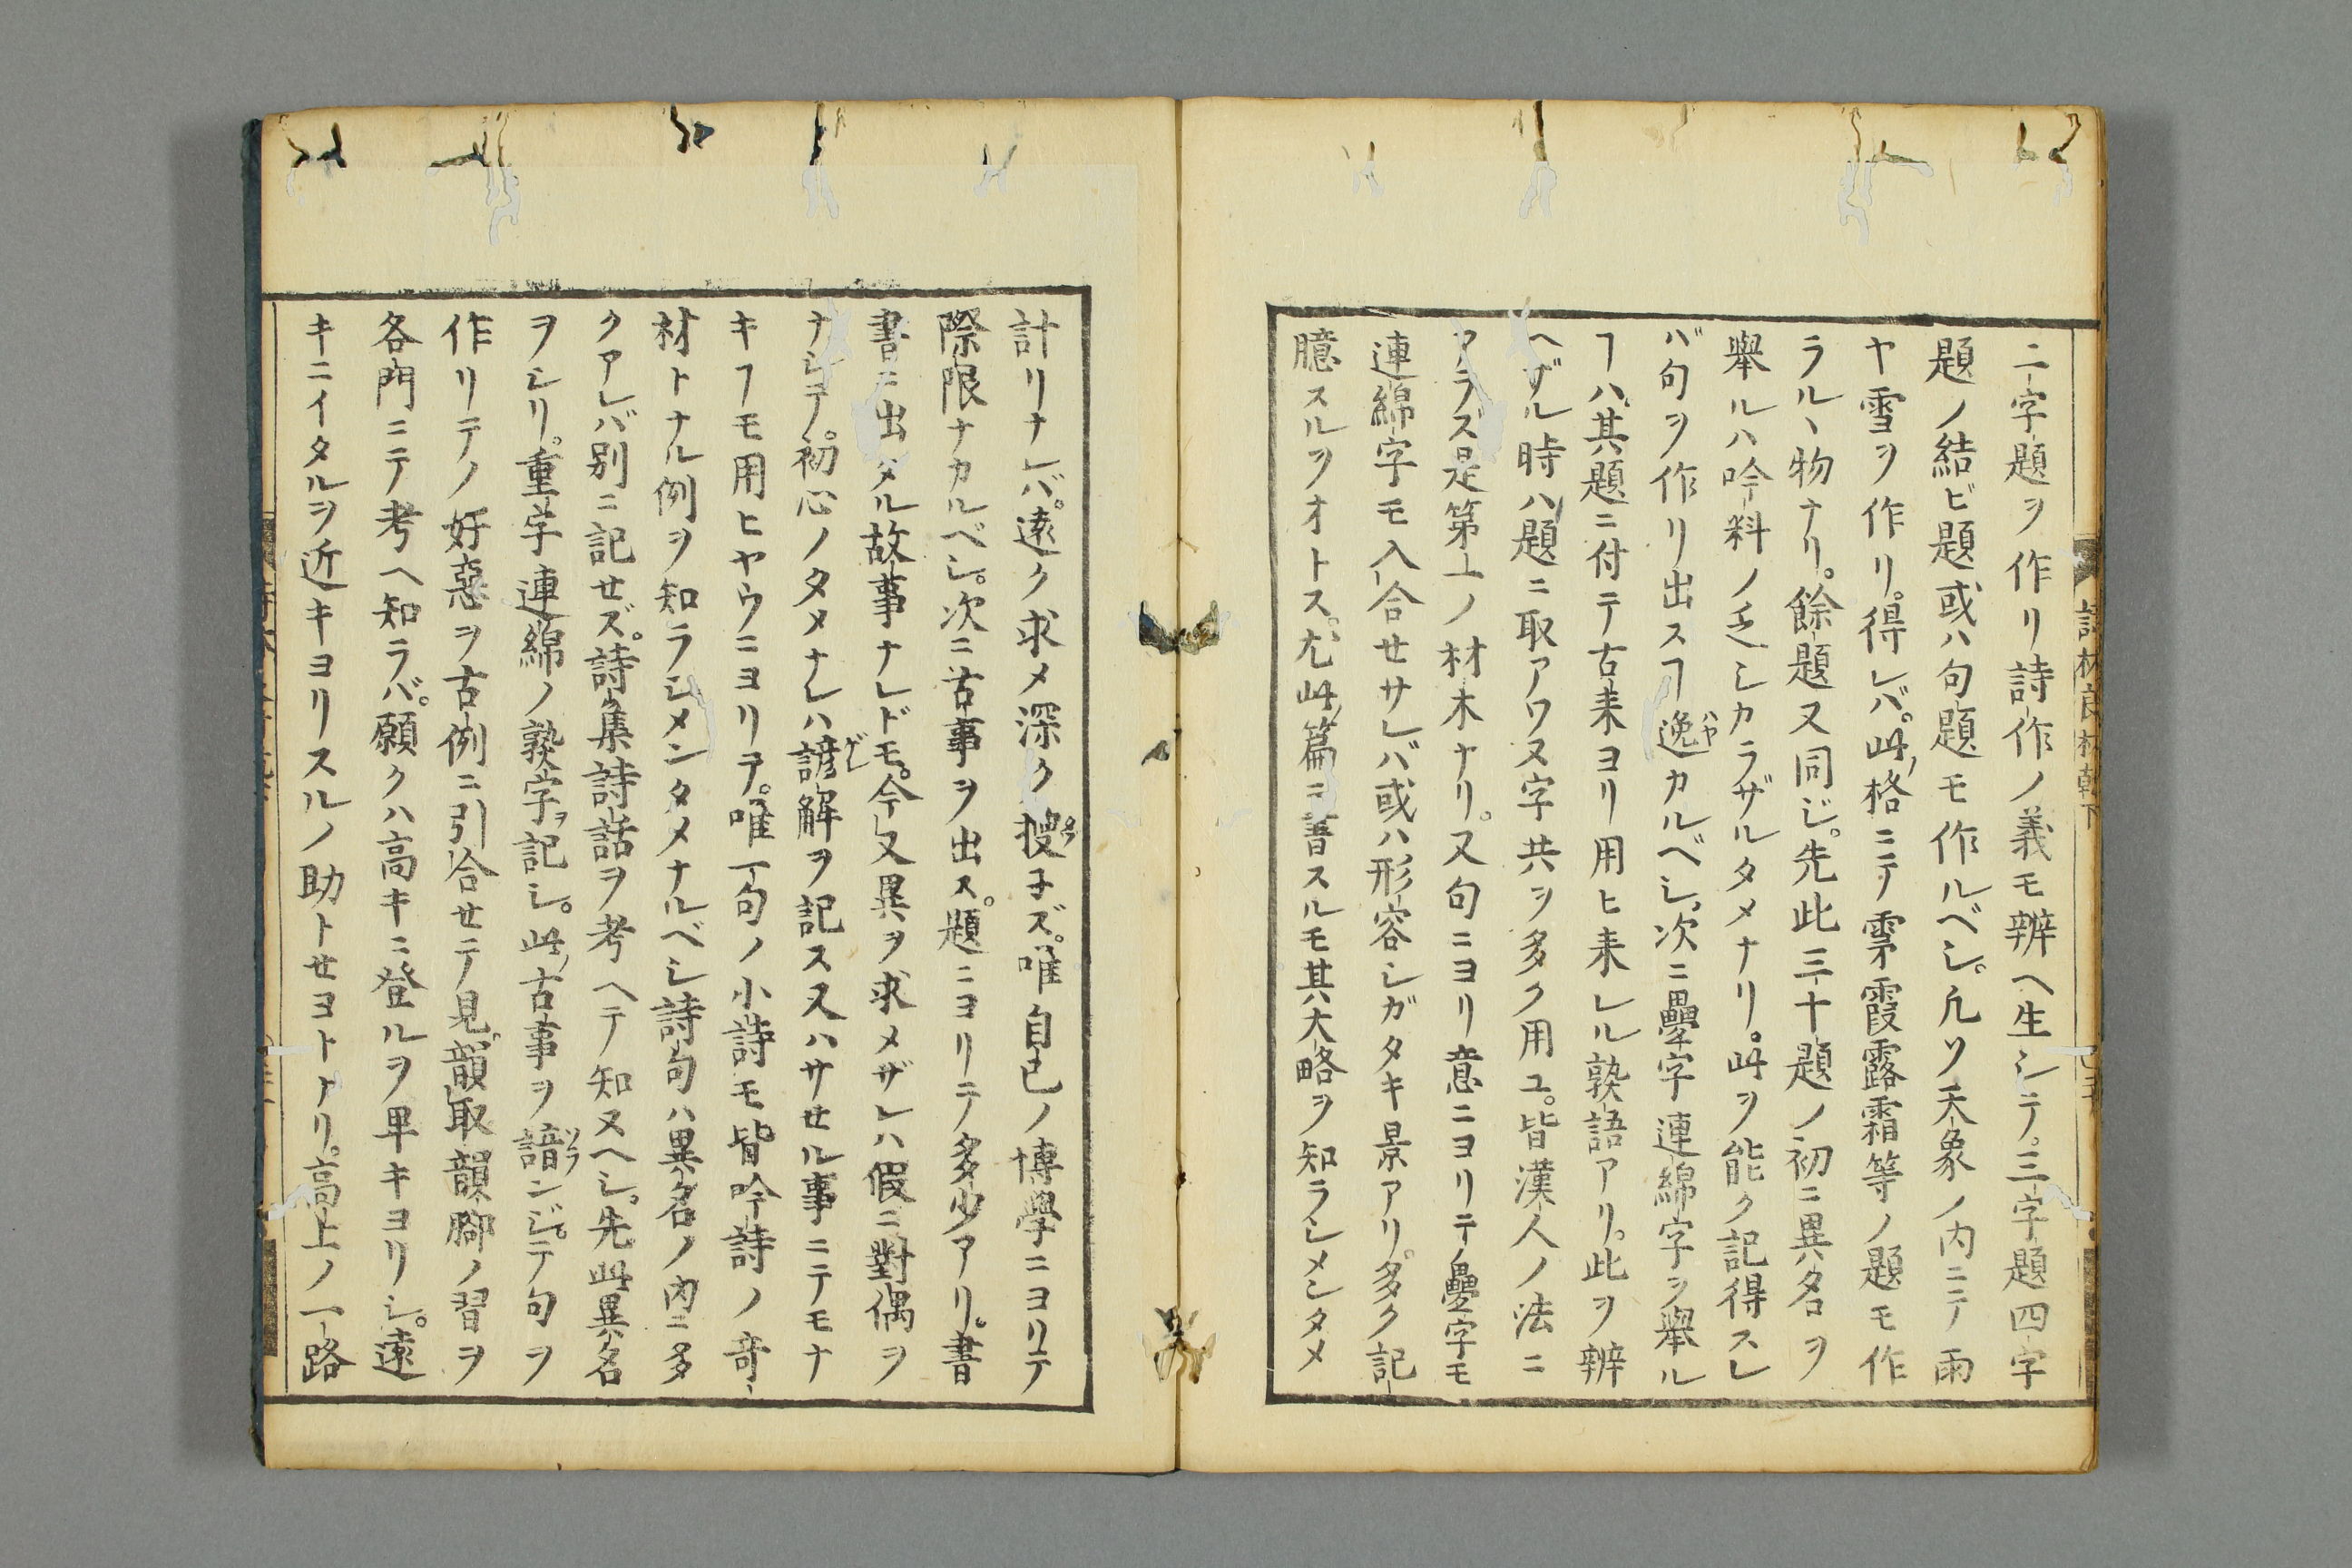 二字題ヲ作リ詩作ノ義モ辨ヘ生シテ。三字題四字
題ノ結ビ題或ハ句題モ作ルベシ。凡ソ天象ノ内ニテ雨
ヤ雪ヲ作リ。得レバ。此格ニテ雲霞露霜等ノ題モ作
ラルヽ物ナリ。餘題又同ジ。先此三十題ノ初ニ異名ヲ
舉ルハ吟料ノ乏シカラザルタメナリ。此ヲ能ク記得スレ
バ句ヲ作リ出スヿ逸カルベシ。次ニ疊字連綿字ヲ舉ル
ヿハ。其題ニ付テ古来ヨリ用ヒ来レル熟語アリ。此ヲ辨
ヘザル時ハ題ニ取アワヌ字共ヲ多ク用ユ。皆漢人ノ法ニ
アラズ是第一ノ材木ナリ。又句ニヨリ意ニヨリテノ疊字モ
連綿字モ入合セサレバ或ハ形容シガタキ景アリ。多ク記
臆スルヲオトス。尤此篇ニ著スルモ其大略ヲ知ラシメンタメ
計リナレバ。遠ク求メ深ク捜子ズ。唯自己ノ博學ニヨリテ
際限ナカルベシ。次ニ古事ヲ出ス。題ニヨリテ多少アリ。書
書ニ出タル故事ナレドモ。今又異ヲ求メザレハ假ニ對偶ヲ
ナシテ。初心ノタメナレハ諺解ヲ記ス又ハサセル事ニテモナ
キヿモ用ヒヤウニヨリテ。唯一句ノ小詩モ皆吟詩ノ奇
材トナル例ヲ知ラシメンタメナルベシ詩句ハ異名ノ内ニ多
クアレバ別ニ記セズ。詩集詩話ヲ考ヘテ知ヌヘシ。先此異名
ヲシリ。重字連綿ノ熟字ヲ記シ。此古事ヲ諳ンジテ句ヲ
作リテノ好惡ヲ古例ニ引合セテ見。韻取韻脚ノ習ヲ
各門ニテ考ヘ知ラバ。願クハ高キニ登ルヲ卑キヨリシ。遠
キニイタルヲ近キヨリスルノ助トセヨトナリ。高上ノ一路